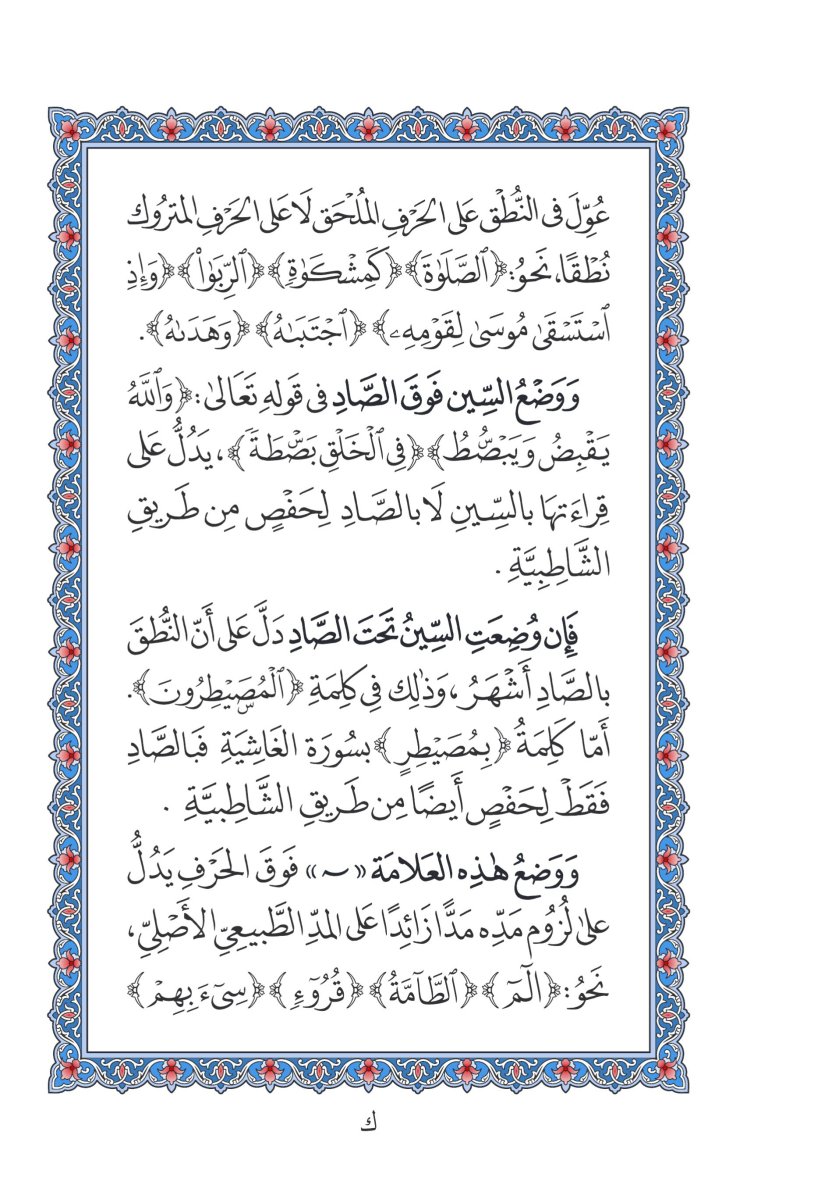 عُوِّلَ فى النُّطْقِ عَلى الحَرْفِ المُلْحَق لَا عَلى الحَرْفِ المَتروُك
نُطْقًا، نَحوُ: ﴿ٱلصَّلَوٰةَ﴾ ﴿كَمِشْكَوٰةٍ﴾ ﴿ٱلرِّبَوٰا۟﴾ ﴿وَإِذِ
ٱسْتَسْقَىٰ مُوسَىٰ لِقَوْمِهِۦ﴾ ﴿ٱجْتَبَىٰهُ﴾ ﴿وَهَدَىٰهُ﴾.
وَوَضْعُ السِّين فَوقَ الصَّادِ فى قَولهِ تَعَالىٰ: ﴿وَٱللَّهُ
يَقْبِضُ وَيَبْصُۜطُ﴾ ﴿فِى ٱلْخَلْقِ بَصْۜطَةً﴾، يَدُلُّ عَلى
قِراءَتهَا بالسِّينِ لَا بالصَّادِ لِحَفْصٍ مِن طَرِيقِ
الشَّاطِبِيَّةِ .
فَإِن وُضِعَتِ السِّينُ تَحتَ الصَّادِ دَلَّ عَلى أَنّ النُّطقَ
بالصَّادِ أَشْهَرُ ، وَذٰلِك فِي كَلِمَةِ ﴿ٱلْمُصَۣيْطِرُونَ﴾.
أَمّا كَلِمَةُ ﴿بِمُصَيْطِرٍ﴾ بسُورَة الغَاشِيَةِ فَبَالصَّادِ
فَقَطْ لِحَفْصٍ أَيضًا مِن طَرِيقِ الشَّاطِبيَّةِ .
وَوَضعُ هٰذِه العَلامَة « ~ » فَوقَ الحَرْفِ يَدُلُّ
علىٰ لُزُوُم مَدِّه مَدًّا زَائِدًا عَلى المَدِّ الطَّبِيعِيِّ الأَصْلِيِّ،
نَحوُ: ﴿الٓمٓ﴾ ﴿ٱلطَّآمَّةُ﴾ ﴿قُرُوٓءٍ﴾ ﴿سِىٓءَ بِهِمْ﴾
ك